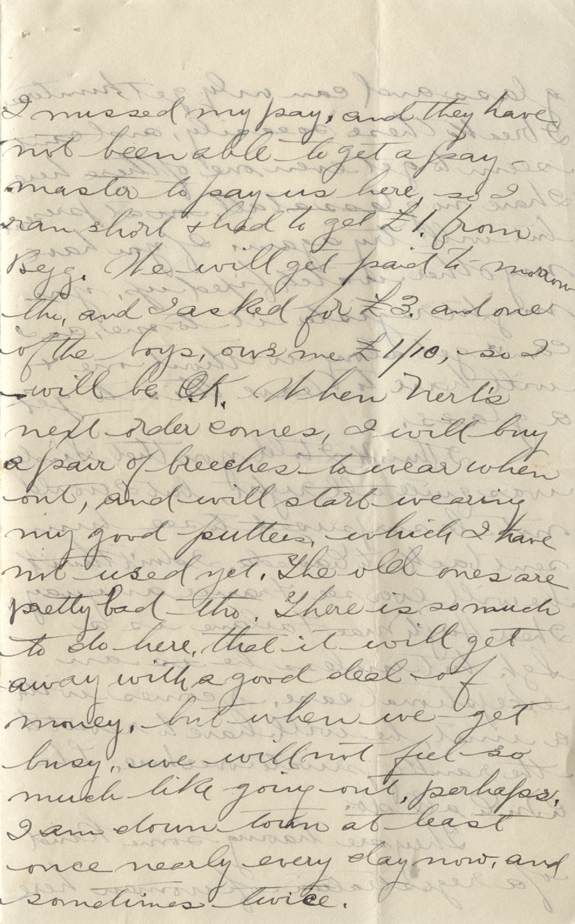 I missed my pay, and they have
not been able to get a pay-
master to pay us here, so I
ran short & had to get £1. from
Begg. We will get paid to morrow
tho, and I asked for £3. and one
of the boys, ows me £1/10, so I
will be O.K. When Nert's
next order comes, I will buy
a pair of breeches to wear when
out, and will start wearing
my good puttees, which I have
not used yet. The old ones are
pretty bad tho. There is so much
to do here, that it will get
away with a good deal of
money, but when we get
busy, we will not feel so
much like going out, perhaps.
I am down town at least
once nearly every day now, and
sometimes twice.